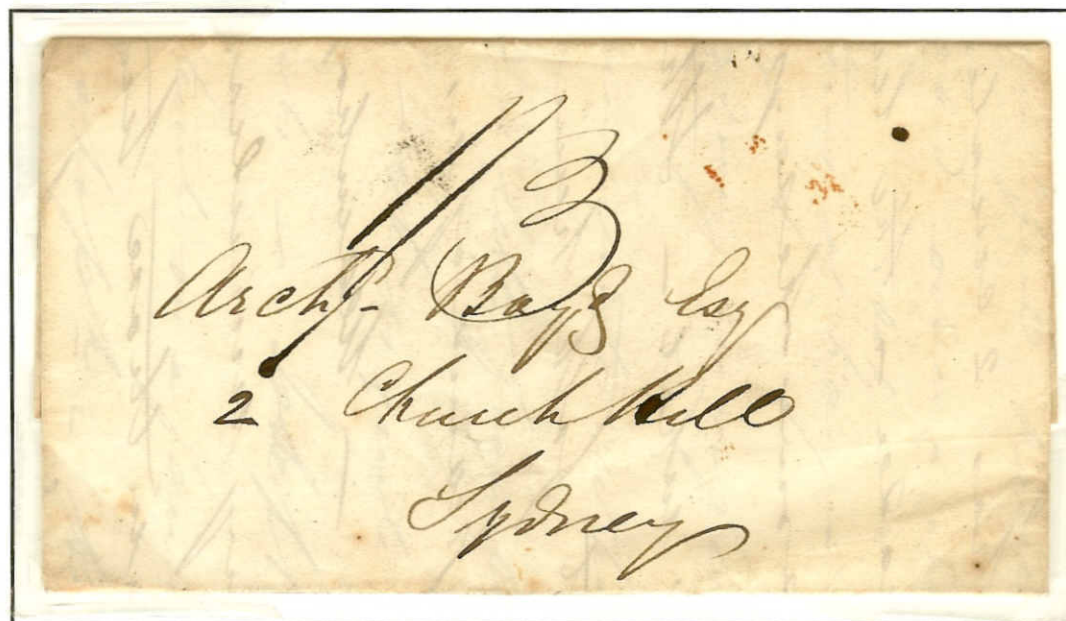 1/3
Archd. Boyd Esq
2 Church Hill
Sydney